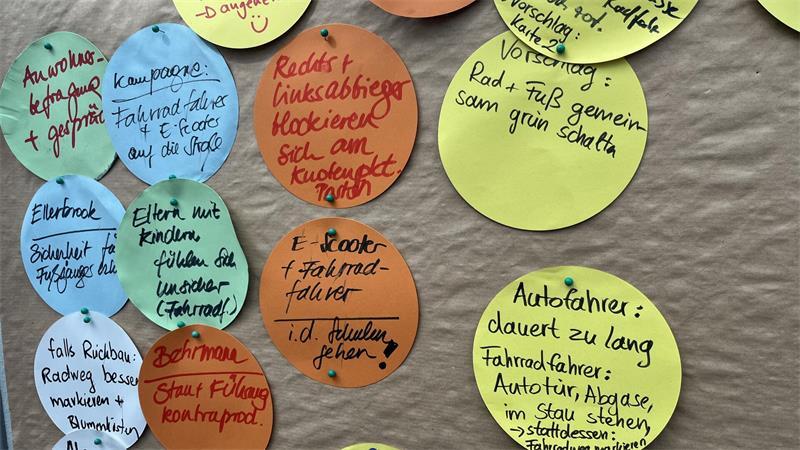 Anwohner-
befragung
+ gespräch
Kampagne:
Fahrradfahrer
+ E-Scooter
auf die Straße
-Dangenen
Rechts +
linksabbieger
blockieren
sich am
Knotenpkt.
Vorschlag:
Karte 2
Radfahr
Vorschlag:
Rad + Fuß gemein-
sam grün schalten
Ellerbrook
Sicherheit für
Fußgänger
Eltern mit
kindern
fühlen sich
unsicher
(Fahrradf.)
E-Scooter
+ Fahrrad-
fahrer
i.d. Schulen
gehen!
falls Rückbau:
Radweg besser
markieren +
Blumenkästen
Behrmann
Stau + Führung
kontraprod.
Autofahrer:
dauert zu lang
Fahrradfahrer:
Autotür, Abgase,
im Stau stehen,
→ stattdessen:
Fahrradweg markieren